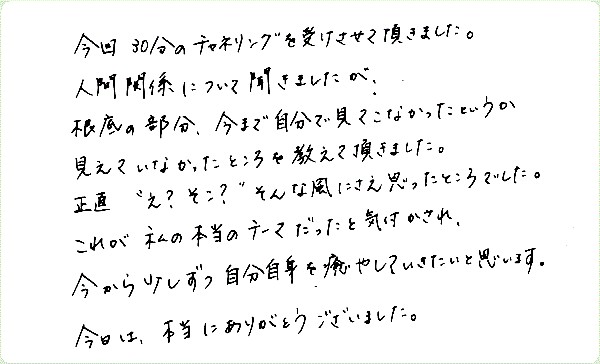 今回 30分のチャネリングを受けさせて頂きました。
人間関係について聞きましたが、
根底の部分、今まで自分で見てこなかったというか
見えていなかったところを教えて頂きました。
正直 “え？そこ？” そんな風にさえ思ったところでした。
これが私の本当のテーマだったと気付かされ、
今から少しずつ自分自身を癒やしていきたいと思います。
今日は、本当にありがとうございました。